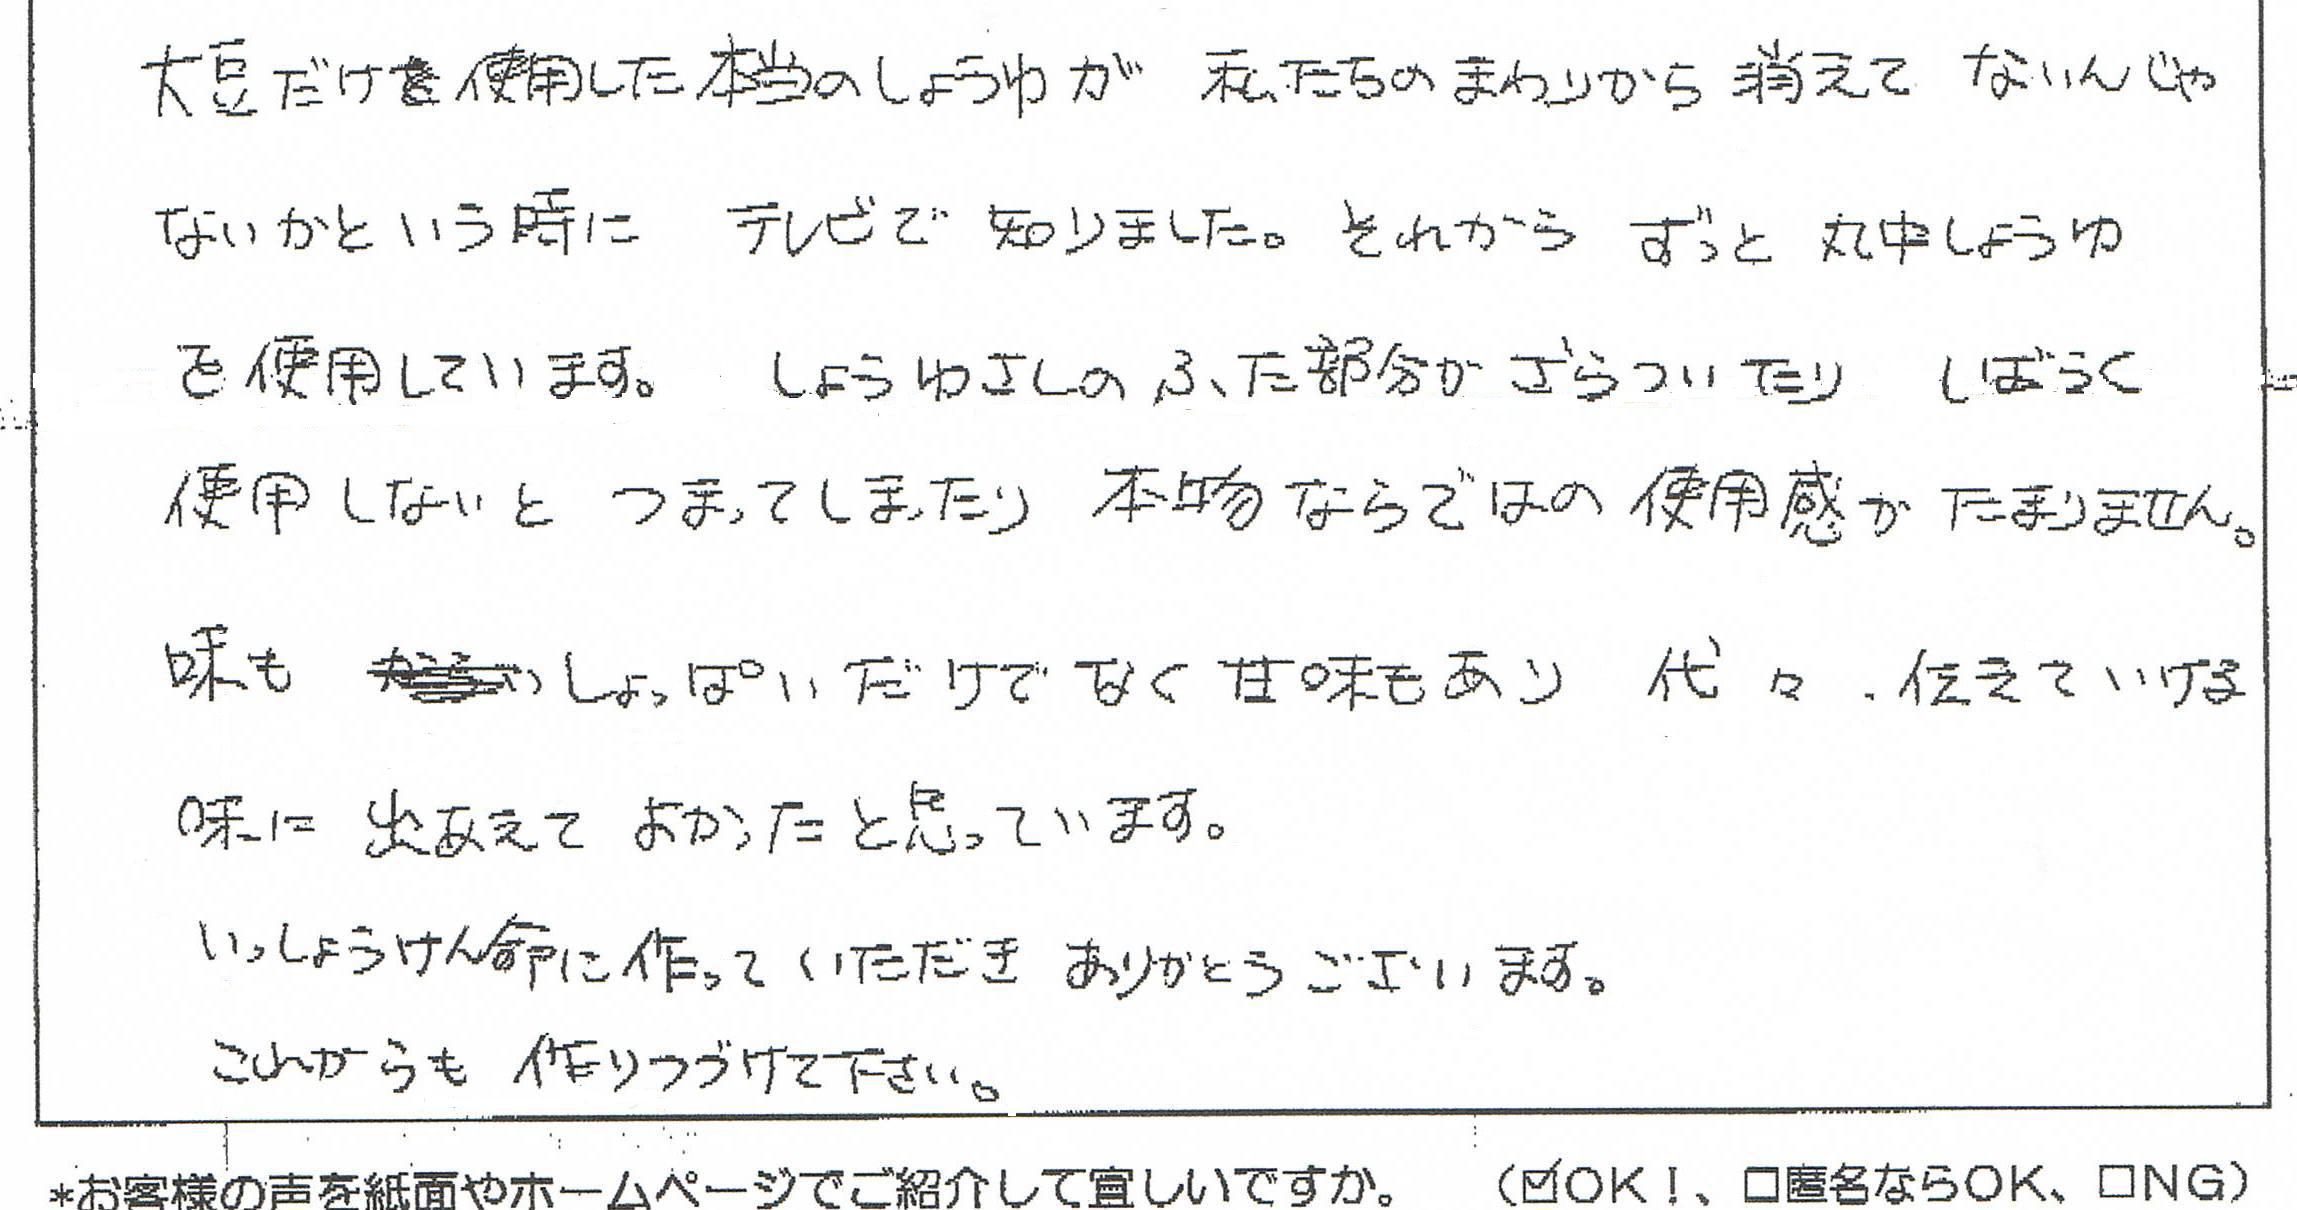 大豆だけを使用した本当のしょうゆが 私たちのまわりから 消えて ないんじゃ
ないかという時に テレビで 知りました。それから ずっと 丸中しょうゆ
を使用しています。 しょうゆさしのふた部分がざらついたり しばらく
使用しないと つまってしまったり 本物ならではの使用感が たまりません。
味も しょっぱいだけでなく甘味もあり 代々、伝えていける
味に 出あえて よかったと思っています。
いっしょうけん命に作っていただき ありがとうございます。
これからも 作りつづけて下さい。
*お客様の声を紙面やホームページでご紹介して宜しいですか。 (☑OK!、□匿名ならOK、□NG)